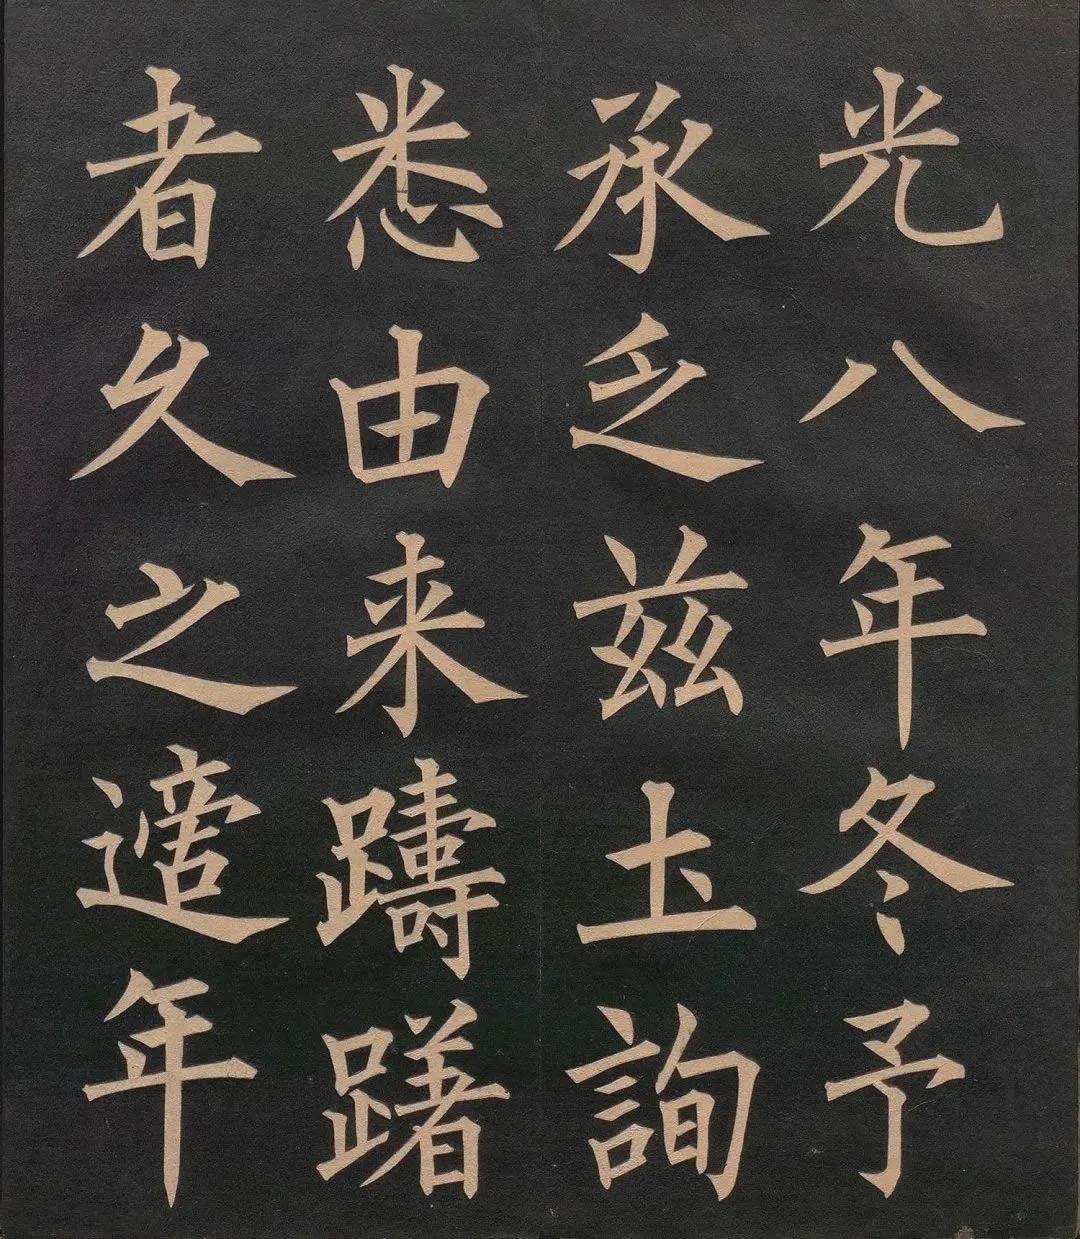 光八年冬予
承乏兹圡詢
悉由来躊躇
者久之適年